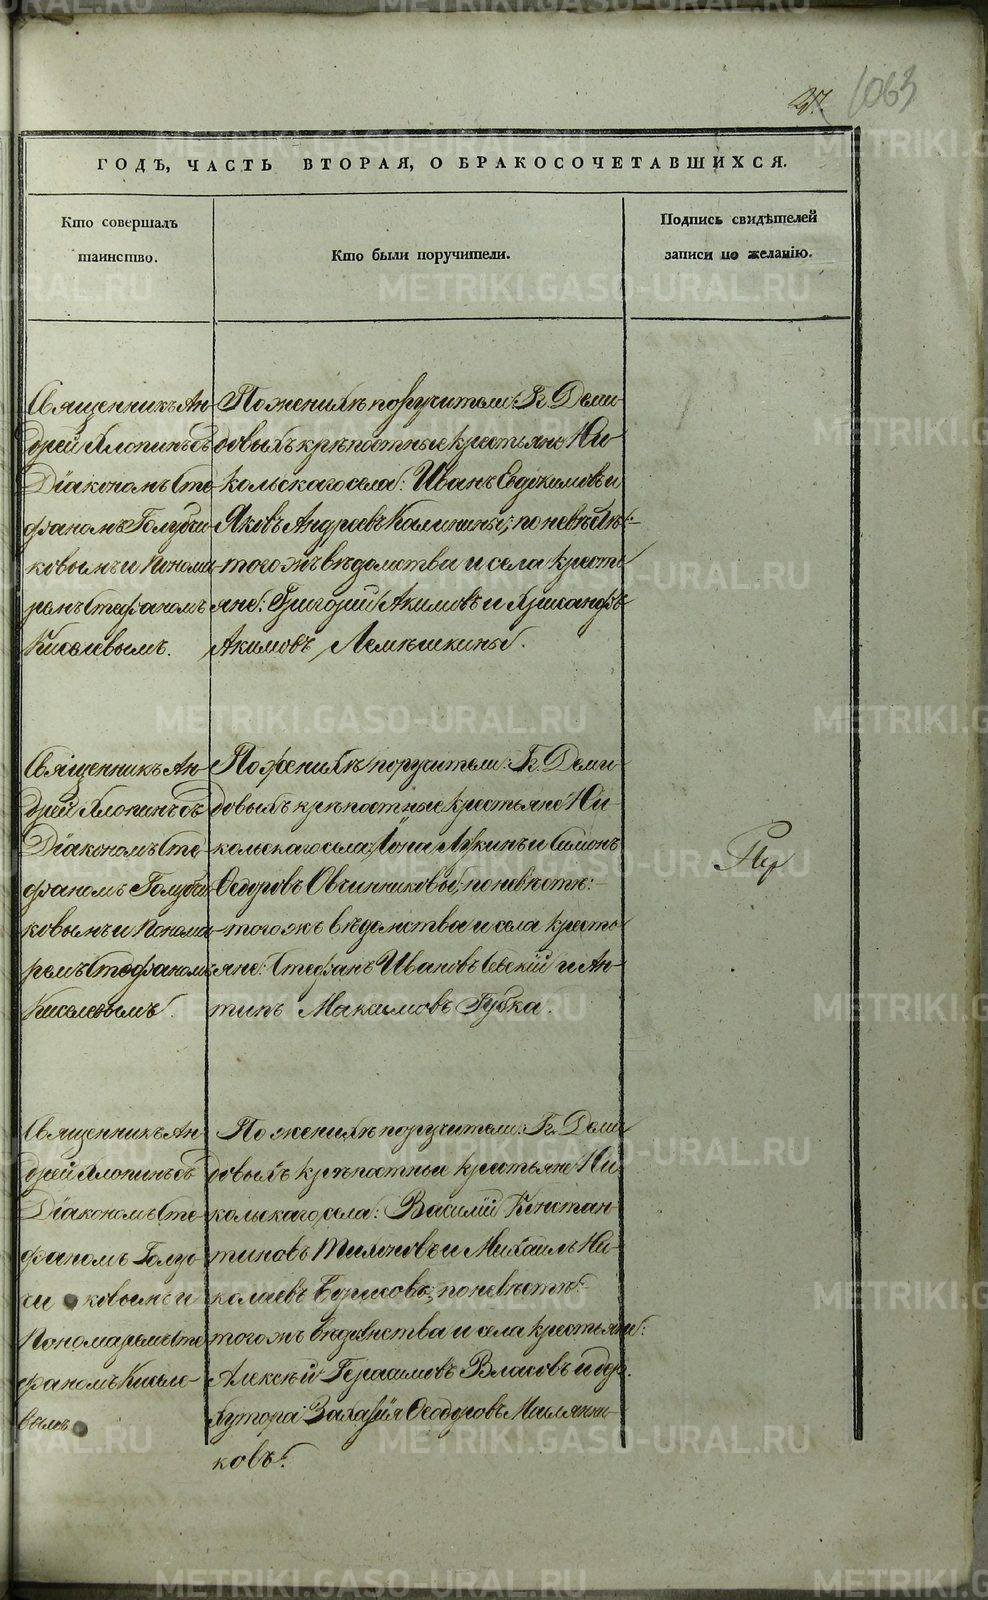 1063
ГОДЪ, ЧАСТЬ ВТОРАЯ, О БРАКОСОЧЕТАВШИХСЯ.
Кто совершалъ таинство.
Кто были поручители.
Подпись свидѣтелей записи по желанію.
Священникъ Ан-
дрей Хлопинъ съ
Діакономъ Сте-
фаномъ Голубчи-
ковымъ и Понома-
ремъ Стефаномъ
Киселевымъ.
По женихѣ поручители: Гг. Деми-
довыхъ крѣпостные крестьяне Ни-
кольскаго села: Иванъ Евдокимовъ и
Яковъ Андреевъ Калинины; по невѣстѣ:
того жъ вѣдомства и села кресть-
яне: Григорій Акимовъ и
Акимовъ Лемѣшкины.
Священникъ Ан-
дрей Хлопинъ съ
Діакономъ Сте-
фаномъ Голубчи-
ковымъ и Понома-
ремъ Стефаномъ
Киселевымъ.
По женихѣ поручители: Гг. Деми-
довыхъ крѣпостные крестьяне Ни-
кольскаго села: Іона Лукинъ и Симонъ
Ѳедоровъ Овчинниковы; по невѣстѣ:
того жъ вѣдомства и села кресть-
яне: Стефанъ Ивановъ и Ан-
типъ Максимовъ Губка.
Священникъ Ан-
дрей Хлопинъ съ
Діакономъ Сте-
фаномъ Голуб-
чи ковымъ и
Пономаремъ Сте-
фаномъ Кисле-
вымъ
По женихѣ поручители: Гг. Деми-
довыхъ крѣпостные крестьяне Ни-
кольскаго села: Василій Констан-
тиновъ Тихоновъ и Михаилъ Ни-
колаевъ Борисовъ; по невѣстѣ:
того жъ вѣдомства и села крестьяне:
Алексѣй Герасимовъ Власовъ и дер.
Хутора Захарія Ѳеодоровъ Маслянни-
ковъ.
METRIKI.GASO-URAL.RU